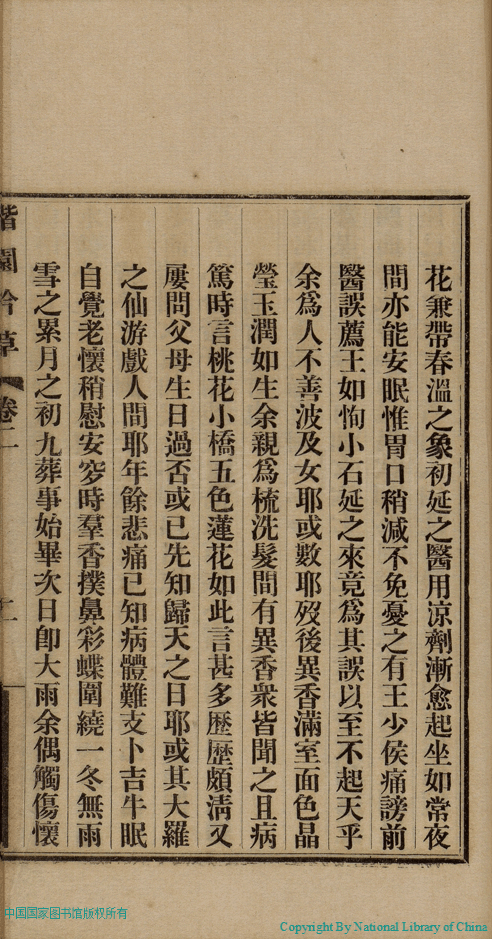 花兼帶春溫之象初延之醫用涼劑漸愈起坐如常夜
間亦能安眠惟胃口稍減不免憂之有王少侯痛謗前
醫誤薦王如恂小石延之來竟爲其誤以至不起天乎
余爲人不善波及女耶或數耶歿後異香滿室面色晶
瑩玉潤如生余親爲梳洗髮間有異香衆皆聞之且病
篤時言桃花小橋五色蓮花如此言甚多歷歷頗淸又
屢問父母生日過否或已先知歸天之日耶或其大羅
之仙游戲人間耶年餘悲痛已知病體難支卜吉牛眠
自覺老懷稍慰安穸時羣香撲鼻彩蝶圍繞一冬無雨
雪之累月之初九葬事始畢次日卽大雨余偶觸傷懷
園吟草 卷二
二
中国国家图书馆版权所有
Copyright By National Library of China